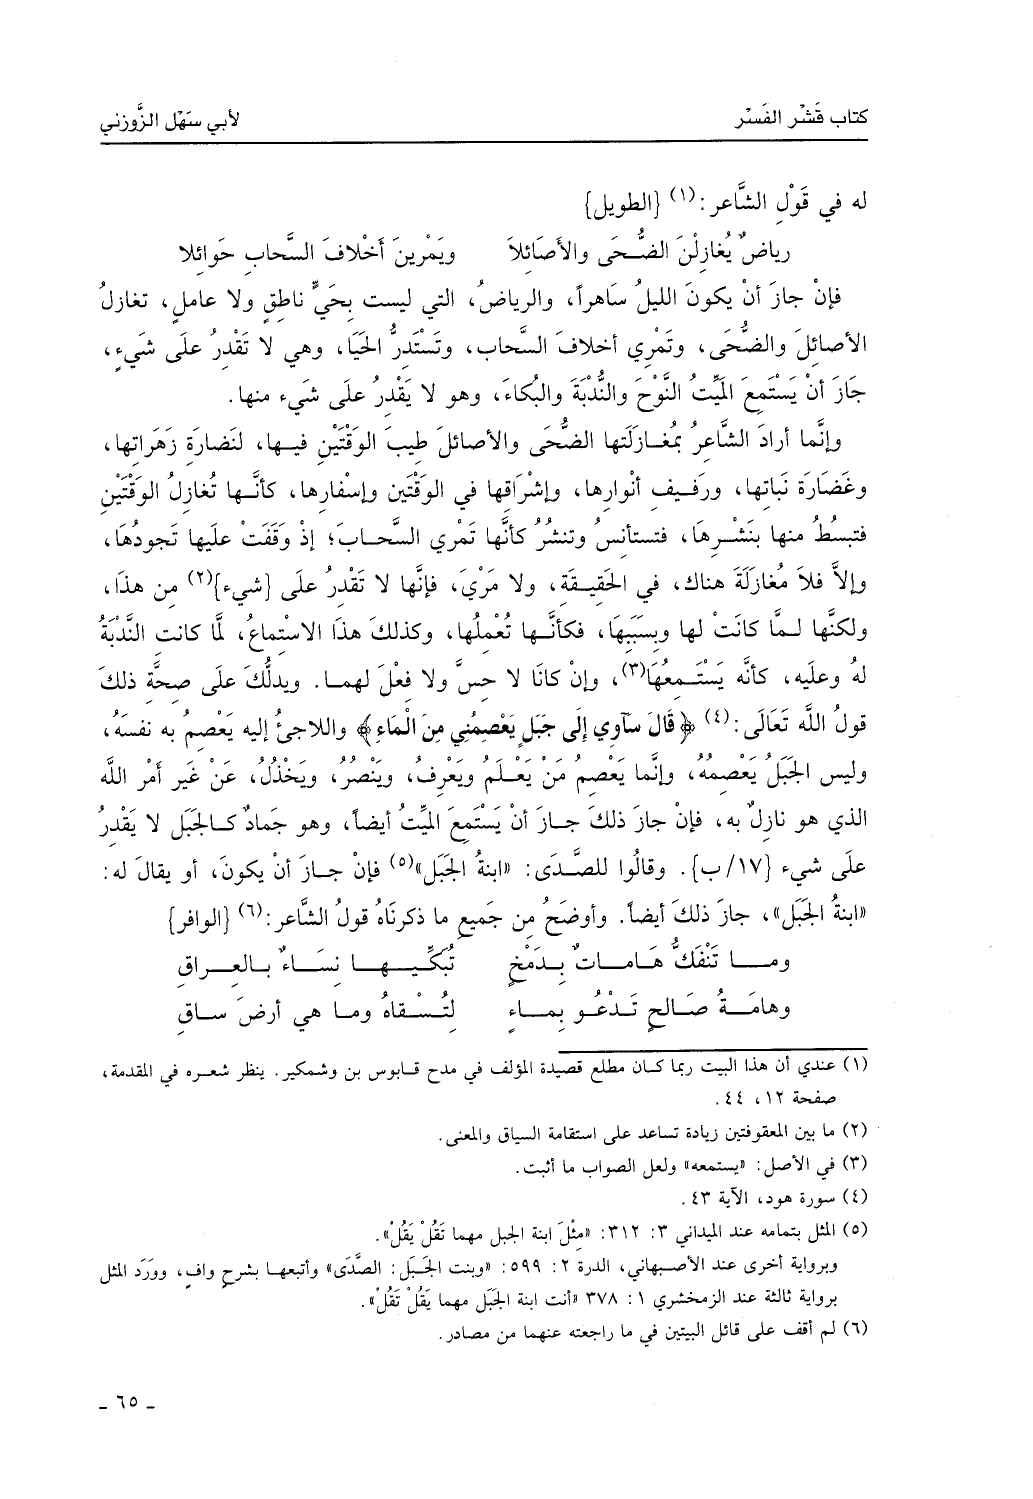 كتاب قَشْر الفَسْر لأبي سَهْل الزَّوزني
له في قَوْلِ الشَّاعر:(١) {الطويل}
رياضٌ يُغازِلْنَ الضُّحَى والأَصَائلاَ ويَمْرينَ أَخْلافَ السَّحابِ حَوائلا
فإنْ جازَ أنْ يكونَ الليلُ سَاهراً، والرياضُ، التي ليست بِحَيٍّ ناطقٍ ولا عاملٍ، تغازلُ
الأصائلَ والضُّحَى، وتَمْرِي أخلافَ السَّحاب، وتَسْتَدرُّ الحَيَا، وهي لا تَقْدرُ على شَيءٍ،
جَازَ أنْ يَسْتَمعَ المَيِّتُ النَّوْحَ والنُّدْبَةَ والبُكاءَ، وهو لا يَقْدرُ علَى شَيء منها.
وإنَّما أرادَ الشَّاعرُ بمُغازَلَتها الضُّحَى والأصائلَ طيبَ الوَقْتَيْنِ فيها، لنَضارَة زَهَراتها،
وغَضَارَة نَباتها، ورَفيفِ أنْوارها، وإشْرَاقها في الوَقْتَين وإسْفارها، كأنَّها تُغازلُ الوَقْتَيْنِ
فتبسُطُ منها بنَشْرِهَا، فتستأنسُ وتنشُرُ كأنَّها تَمْري السَّحابَ؛ إذْ وَقَفَتْ عليها تَجودُهَا،
وإلاَّ فلاَ مُغازَلَةَ هناك، في الحَقيقَة، ولا مَرْيَ، فإنَّها لا تَقْدرُ علَى {شيء}(٢) من هذَا،
ولكنَّها لمَّا كانَتْ لها وبسَبَبِهَا، فكأنَّها تُعْملُها، وكذلكَ هذَا الاسْتماعُ، لمَّا كانت النُّدْبَةُ
لهُ وعليه، كأنَّه يَسْتَمعُهَا(٣)، وإن كانَا لا حسَّ ولا فعْلَ لهما. ويدلُّكَ على صحَّة ذلكَ
قولُ اللَّه تَعَالَى:(٤) ﴿قَالَ سَآوِي إلَى جَبَلٍ يَعْصِمُنِي مِنَ الْمَاءِ﴾ واللاجئُ إليه يَعْصمُ به نفسَهُ،
وليس الجَبَلُ يَعْصمُهُ، وإنَّما يَعْصمُ مَنْ يَعْلَمُ ويَعْرفُ، ويَنْصُرُ، ويَخْذُلُ، عَنْ غَير أمْر اللَّه
الذي هو نازلٌ به، فإنْ جازَ ذلكَ جازَ أنْ يَسْتَمعَ الميِّتُ أيضاً، وهو جَمادٌ كالجَبَل لا يَقْدرُ
علَى شيء {١٧/ب}. وقالُوا للصَّدَى: «ابنةُ الجَبَل»(٥) فإنْ جازَ أنْ يكونَ، أو يقالَ له:
«ابنةُ الجَبَل»، جازَ ذلكَ أيضاً. وأوضَحُ من جَميع ما ذكرنَاهُ قولُ الشَّاعر:(٦) {الوافر}
وما تَنْفَكُّ هَاماتٌ بِدَمْخٍ تُبَكِّيها نِسَاءٌ بالعِراقِ
وهامَةُ صَالحٍ تَدْعُو بمَاءٍ لتُسْقاهُ وما هي أرضَ ساقِ
(١) عندي أن هذا البيت ربما كان مطلع قصيدة المؤلف في مدح قابوس بن وشمكير. ينظر شعره في المقدمة،
صفحة ١٢، ٤٤.
(٢) ما بين المعقوفتين زيادة تساعد على استقامة السياق والمعنى.
(٣) في الأصل: «يستمعه» ولعل الصواب ما أثبت.
(٤) سورة هود، الآية ٤٣.
(٥) المثل بتمامه عند الميداني ٣: ٣١٢: «مِثْلَ ابنة الجبل مهما تَقُلْ يَقُلْ».
وبرواية أخرى عند الأصبهاني، الدرة ٢: ٥٩٩: «وبنت الجَبَل: الصَّدَى» وأتبعها بشرح وافٍ، ووَرَد المثل
برواية ثالثة عند الزمخشري ١: ٣٧٨ «أنت ابنة الجَبَل مهما يَقُلْ تَقُلْ».
(٦) لم أقف على قائل البيتين في ما راجعته عنهما من مصادر.
ـ ٦٥ ـ